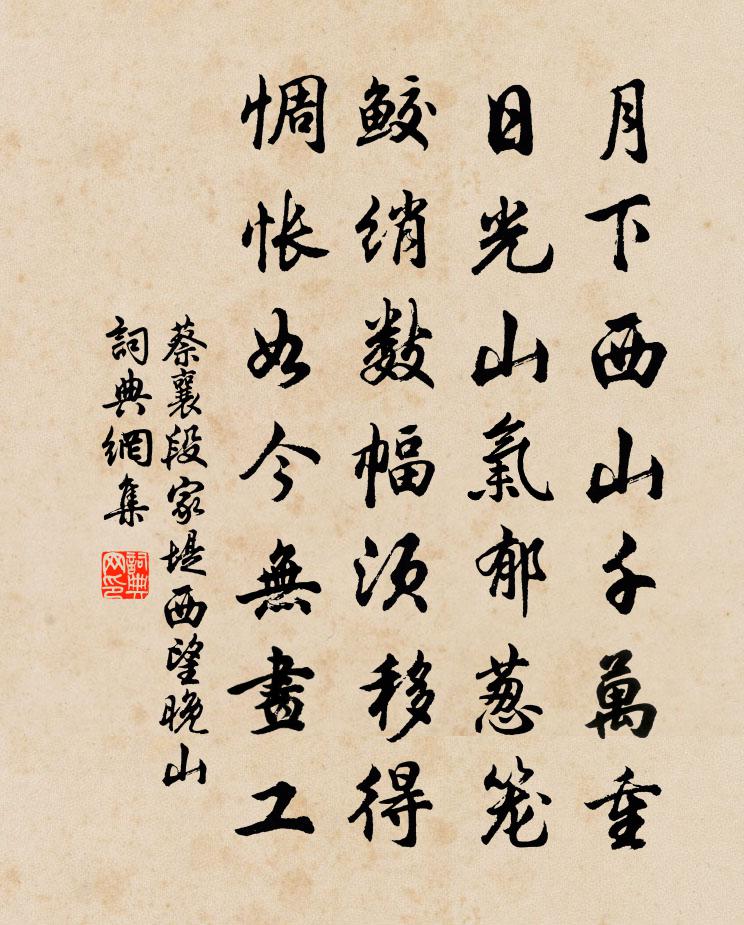 月下西山千萬重
日光山氣郁葱笼
鲛绡数幅须移得
惆怅如今無畫工
蔡襄段家堤西望晚山
詞典網集
詞典网印